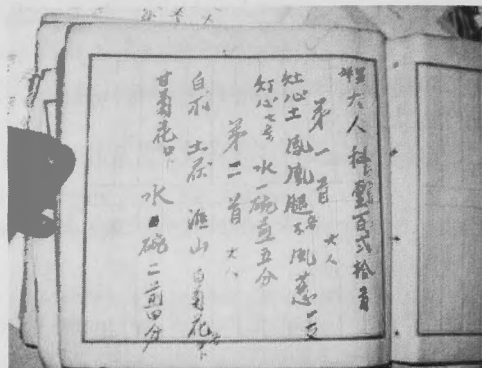 大人科藥百弍拾首
第一首 大人
灶心土 鳳凰腿 風葱一文
灯心七寸 水一碗煎五分
第二首 大人
白朮 土茯 淮山 白菊花
甘菊花 水碗二煎四分